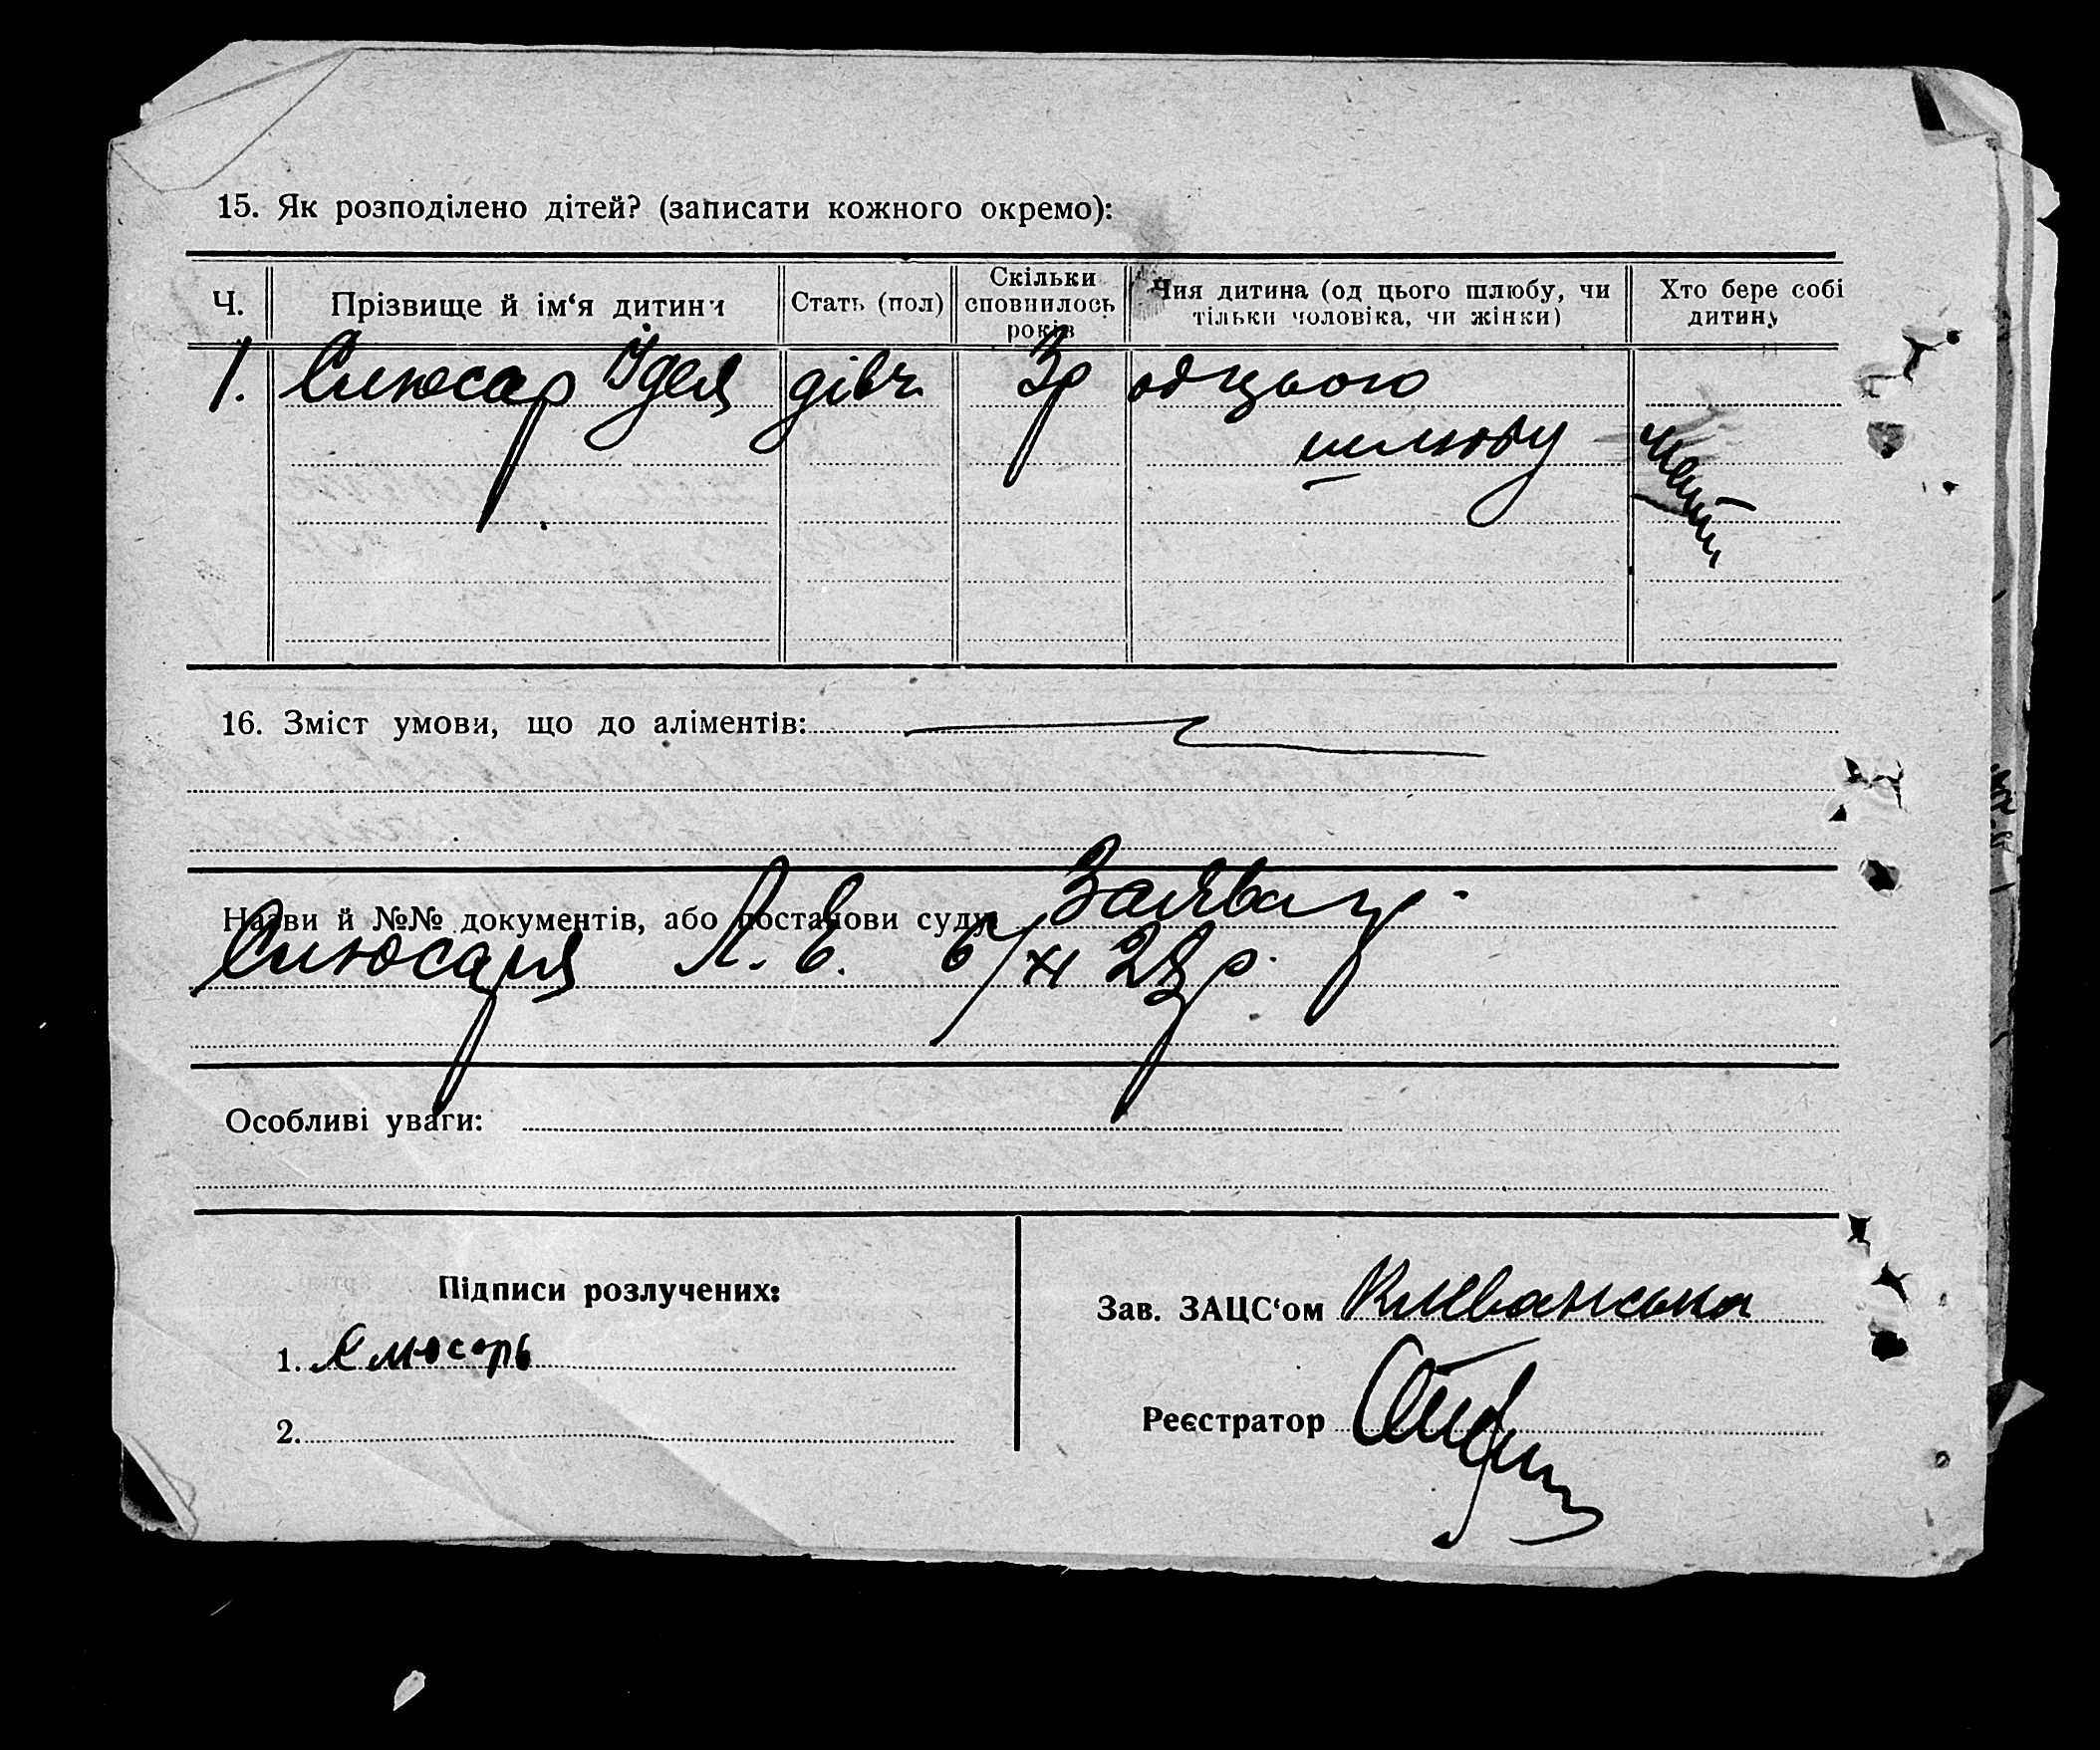 15. Як розподілено дітей? (записати кожного окремо):
Ч. Прізвище й ім‘я дитини Стать (пол) Скільки сповнилось років Чия дитина (од цього шлюбу, чи тільки чоловіка, чи жінки) Хто бере собі дитину
1. Слюсар Ідея дівч. 3р од цього
шлюбу мати
16. Зміст умови, що до аліментів:
Назви й №№ документів, або постанови суду Заява гр.
Слюсаря Л. Є. 6/XI 28р.
Особливі уваги:
Підписи розлучених:
Зав. ЗАЦС‘ом
1. Слюсарь
Реєстратор
2.